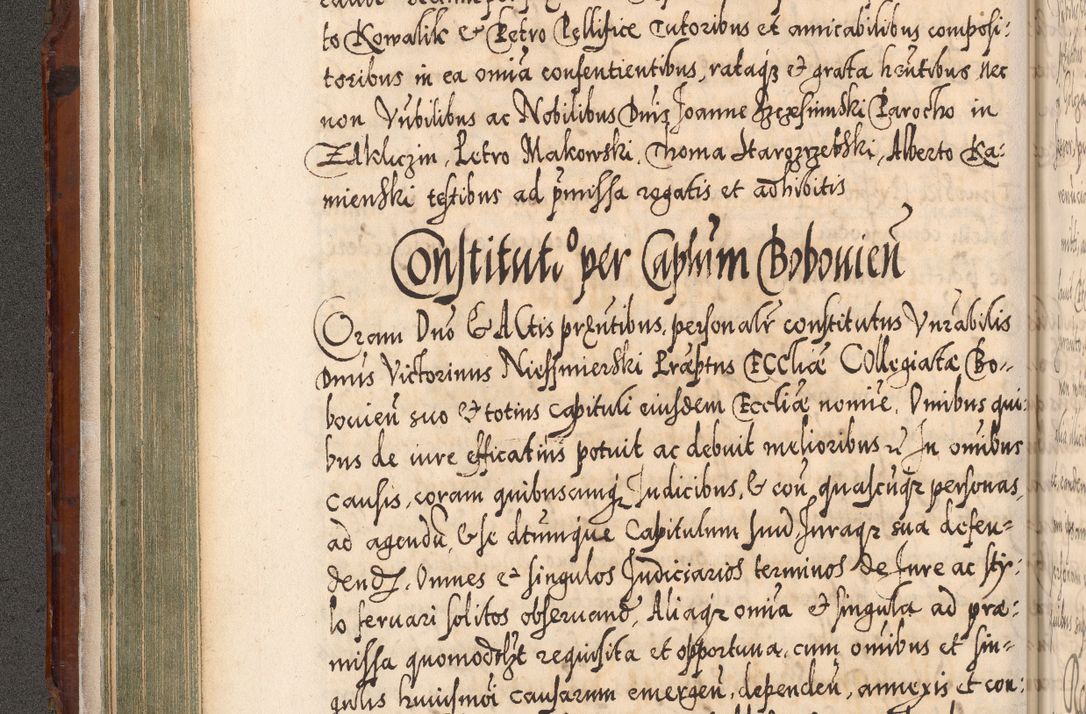 to Kowalik & Petro Pellifice Tutoribus et amicabilibus composi:
toribus in ea omĩa consentientibus, rataqz & grata hñtibus nec
non Vñbilibus ac Nobilibus Dnis Joanne Parocho in
Zakliczin, Petro Makowski, Thoma Starozrzebski, Alberto Ka:
mienski testibus ad p̃missa rogatis et adhibitis
Constitutio per Caplũm Boboviẽn
Coram Dno & Actis pręntibus, personalr̃ constitutus Vnrabilis
Dnus Victorinus Niessmierski Præptus Eccliæ Collegiatæ Bo-
boviẽn suo & totius capituli eiusdem Eccliæ nomĩe. Omibus qui:
bus de iure efficatius potuit ac debuit melioribus In omibus
causis, coram quibuscunqz Judicibus, & coñ quascũqz personas
ad agendũ, & se dtumque Capitulum suũ, Juraqz sua defen=
dendũ, Omnes & singulos Judiciarios terminos de Jure ac sty:
lo servari solitos observand, Aliaqz omĩa & singula ad præ:
missa quomodolzt requisita et opportuna, cum omibus et sin=
gulis huiusmõi causarum emergeñ, dependeñ, annexis et con: